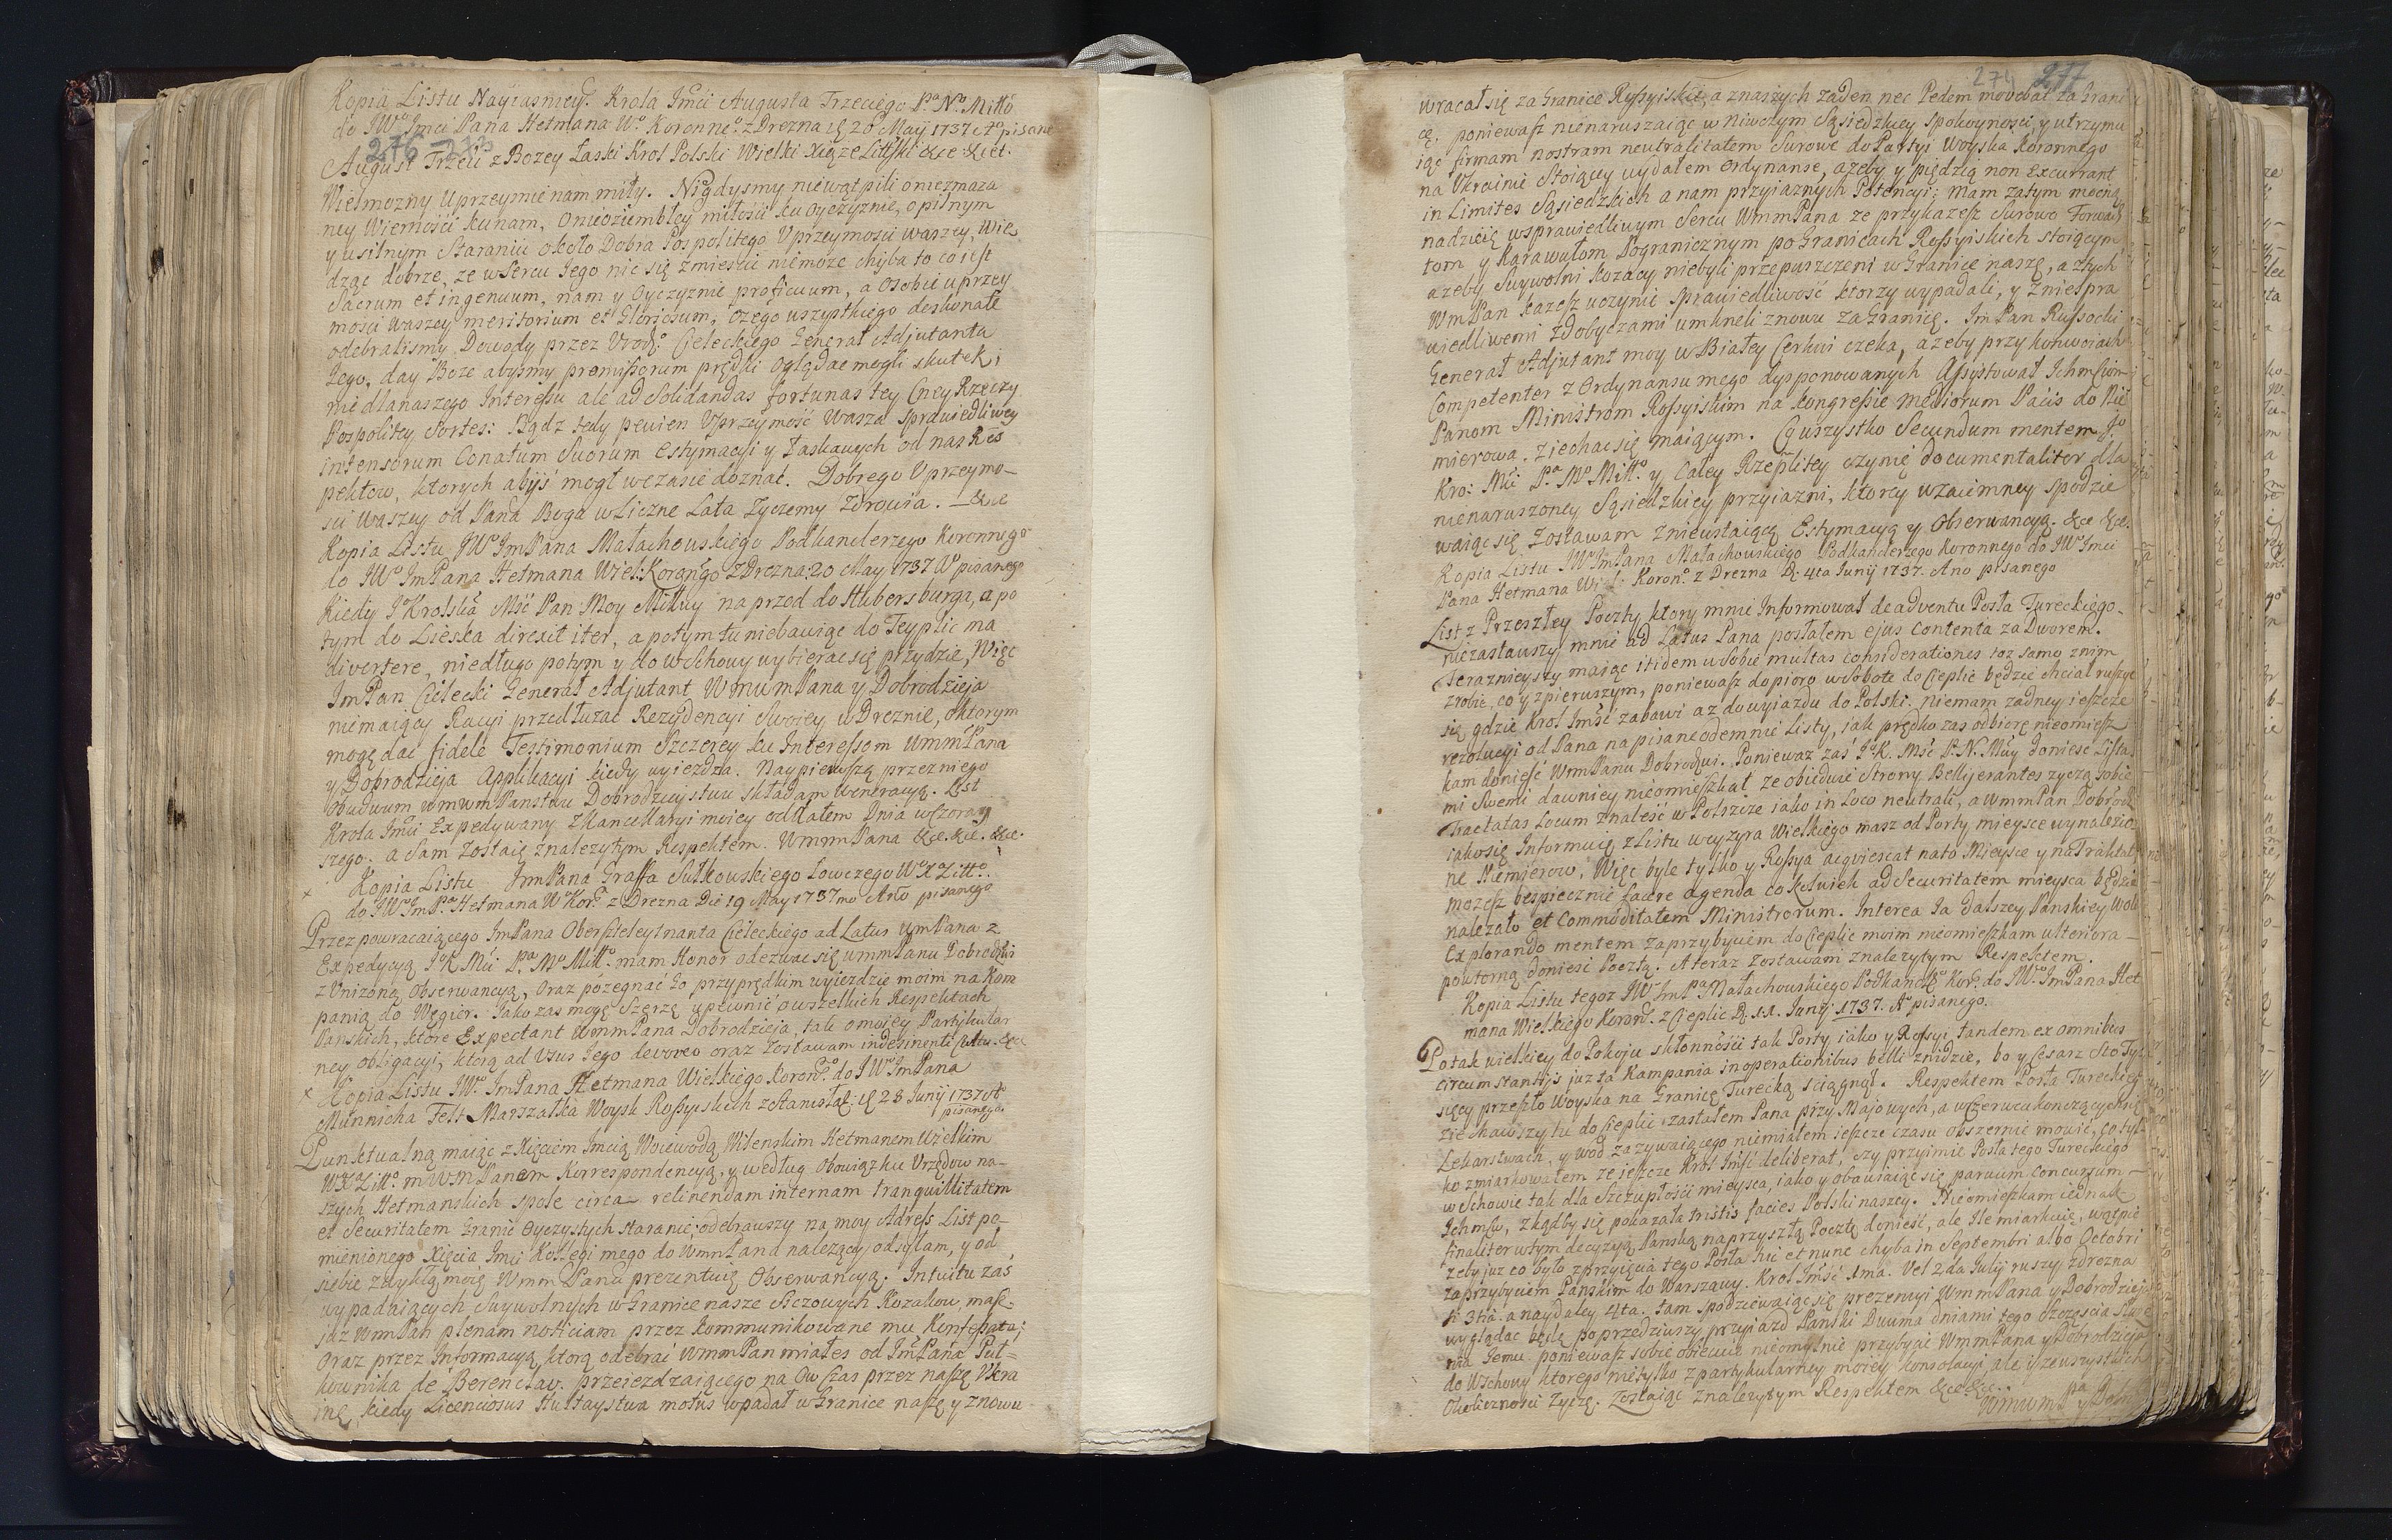 Kopia Listu Nayiasniey: Krola Imci Augusta Trzeciego Pa No Mitto
do JWo Imci Pana Hetmana Wo Koronneo z Drezna 20 Maij 1737 Ao pisane
276
August Trzeci z Bozey Łaski Krol Polski Wielki Xiąze Littski &ce &cet.
Wielmozny Uprzeymie nam miły. Nigdysmy niewątpili oniezmaza
ney Wiernosci ku nam, Onieoziembłey miłosci ku oyczyznie, o pilnym
y usilnym Staraniu około Dobra Pospolitego Uprzeymosci waszey, Wie
dząc dobrze, ze w Sercu Jego nic się zmiescic niemoze chyba to co iest
Sacrum et ingenuum, nam y Oyczyznie proficuum, a Osobie uprzey
mosci Waszey meritorium et Gloriosum, czego wszystkiego deskonałe
odebralismy Dowody przez Urodo Cieleckiego Generał Adjutanta
Jego, day Boze abysmy promissorum prędki oglądac mogli skutek;
nie dlanaszego Interessu ale ad Solidandas fortunas tey Cney Rzeczy
Pospolitey Sortes: Bądz tedy pewien Uprzeymość Wasza sprawiedliwey
intensorum Conatum Suorum Estymacyi y Łaskawych od nas Res
pektow, ktorych abyś mogł wczasie doznać. Dobrego Uprzeymo-
sci Waszey od Pana Boga w Liczne Lata Zyczemy Zdrowia. &ce
Kopia Listu JWo ImPana Małachowskiego Podkanclerzego Koronnego
do JWo ImPana Hetmana Wiel: Korongo z Drezna 20 May 1737 Ao pisanego
Kiedy Jo Krolska Msć Pan Moy Mittwy naprzod do Hubersburga, a po
tym do Lieska direxit iter, a potym tu niebawiąc do Teyplic ma
divertere, niedługo potym y do wschowy wybierac się przydzie, Więc
ImPan Cielecki Generał Adjutant Wmwm Pana y Dobrodzieja
niemaiący Racyi przedłuzac Rezydencyi Swoiey w Dreznie, oktorym
mogę dac fidele Testimonium Szczerey ku Interessom WmmPana
y Dobrodzieja Applikacyi kiedy wyiezdza. Naypierwszą przezniego
Obudwum wmwmPanstwu Dobrodzieystwu składam Weneracyą. List
Krola Imci Expedywany z Kancellaryi moiey oddałem Dnia wczoray
szego. a Sam zostaię z nalezytym Respektem. WmmPana &ce. &ce. &ce.
x Kopia Listu ImPana Graffa Sułkowskiego Łowczego WXLitto
do JWo ImPa Hetmana Wo Kor. z Drezna Die 19 May 1737mo Ano pisanego
Przez powracaiącego ImPana Obersztleytnanta Cieleckiego ad Latus wmPana z
Expedycyą JoK Mci Pa Mo Mitto. mam Honor odezwac się wmmPanu Dobrodzieiowi
z Unizoną Obserwancyą, Oraz pozegnać Go przy prędkim wyiezdzie moim na Kam
panią do Węgier. Jako zas mogę Szerzę upewnić o wszelkich Respektach
Panskich, ktore Expectant WmmPana Dobrodzieja, tak o moiey Partykular
ney obligacyi, ktorą ad Usus Jego devoveo oraz Zostawam indesinenti Cultu. &ce
x Kopia Listu JWo. ImPana Hetmana Wielkiego Korono. do JWo ImPana
Münnicha Felt Marszałka Woysk Rossyiskich z Stanisław: 28 Junij 1737 Ao
pisanego.
Punktualną maiąc z Xięciem Imcią Woiewodą Wilenskim Hetmanem Wielkim
WXLitto. m WM Panem Korrespondencyą, y według Obowiązku Urzędow na-
szych Hetmanskich spole circa retinendam internam tranquillitatem
et Securitatem Granic Oyczystych staranie; odebrawszy na moy Adress List po-
mienionego Xięcia Imci Kollegi mego do WmmPana nalezący odsyłam, y od
siebie zwykłą moię WmmPanu prezentuię Obserwancyą. Intuitu zas
wypadaiących Suywolnych w Granice nasze Siczowych Kozakow, masz
juz WmmPan plenam notitiam przez Kommunikowane mu Konsepata;
Oraz przez Informacyą, ktorą odebrać WmmPan miałes od ImPana Puł-
kownika de Berenclav. przeiezdzaiącego na Ow Czas przez naszę Ukra
inę, kiedy Licenciosus Hultaystwa motus wpadał w Granice naszę y znowu
274 277
wracał się za Granice Rossyiskie, a znaszych zaden nec Pedem movebat za Grani
cę, poniewasz nienaruszaiąc w Niwczym Sąsiedzkiey Spokoynosci, y utrzymu
iąc firmam nostram neutralitatem Surowe do Partyi Woyska Koronnego
na Ukrainie Stoiącey wydałem Ordynanse, azeby y piędzią non Excurrant
in Limites Sąsiedzkich a nam przyiaznych Potencyi; mam zatym mocną
nadzieię w sprawiedliwym Sercu WmmPana ze przykazesz Surowo Forwach
tom y Karawułom Pogranicznym po Granicach Rossyiskich stoiącym,
azeby Suywolni Kozacy niebyli przepuszczeni w Granice naszę, a ztych
WmPan kazesz uczynic sprawiedliwość ktorzy wypadali, y Zniespra
wiedliwemi zdobyczami umkneli znowu za Granicę. Im Pan Russocki
Generał Adjutant moy w Białey Cerkwi czeka, azeby przy konwoiach
Competenter z Ordynansu mego dysponowanych Assystował Ichm Ciom
Panom Ministrom Rossyiskim na Kongressie Mediorum Pacis do Nie
mierowa Ziechac się maiącym. Co wszystko Secundum mentem Jo
Kro: Mci Pa Mo Mitto. y Całey Rzeplitey czynię documentaliter dla
nienaruszoney Sąsiedzkiey przyiazni, ktorey wzaiemney spodzie
waiąc się Zostawam z nieustaiącą Estymacyą y Obserwancyą. &ce &ce.
Kopia Listu JWo ImPana Małachowskiego Podkanclerzego Koronnego do JWo Imci
Pana Hetmana Wiel: Korono. z Drezna D: 4ta Junij 1737. Ano pisanego
List z Przeszłey Poczty, ktory mnie Informował de adventu Posła Tureckiego
niezastawszy mnie ad Latus Pana posłałem ejus Contenta za Dworem.
Terazniejszy maiąc itidem w sobie multas considerationes toz samo znim
zrobię, co y z pierwszym, poniewasz dopiero w Sobote do Cieplic będzie chciał ruszyc
się gdzie Krol Imść zabawi az do wyjazdu do Polski. niemam zadney ieszcze
rezolucyi od Pana na pisane odemnie Listy, iak prędko zas odbiorę nieomiesz
kam doniesć WmmPanu Dobrodzieiowi. Poniewaz zaś JoK. Mść P. N. Miły doniesc Lista
mi Swemi dawniey nieomieszkał, ze obiedwie Strony Bellijerantes zyczą sobie
Tractatus Locum znalesć w Polszcze iako in Loco neutrali, a WmmPan Dobrodz
iako się Informuię z Listu wezyra Wielkiego masz od Porty mieysce wynalezio
ne Niemierow, Więc byle tylko y Rossya acquiescat na to Mieysce y na Traktat
mozesz bespiecznie facere agenda cokolwiek ad Securitatem mieysca będzie
nalezało et Commoditatem Ministrorum. Interea Ja dalszey Panskiey woli
Explorando mentem zaprzybyciem do Cieplic moim nieomieszkam ulteriora
powtorną doniesc Pocztą. A teraz zostawam z nalezytym Respektem.
Kopia Listu tegoz JWo ImPa Małachowskiego Podkanclo Kor: do JWo. ImPana Het
mana Wielkiego Korono. z Cieplic D. 11. Junij 1737. Ao pisanego.
Po tak wielkiey do Pokoju skłonności tak Porty iako y Rossyi, tandem ex omnibus
circumstantijs juz ta Kampania in operationibus belli znidzie, bo y Cesarz Sto Ty
sięcy przeszło Woyska na Granicę Turecką sciągnął. Respektem Posła Tureckieg
ziechawszy tu do Cieplic zastałem Pana przy Majowych, a w Czerwcu konczących się
Lekarstwach, y wod zazywaiącego niemiałem ieszcze czasu obszernie mowic, co tyl
ko zmiarkowałem ze jeszcze Krol Imść deliberat, czy przyimie Posła tego Tureckiego
w Schowie tak dla Szczupłości mieysca, iako y obawiaiąc się parvum Concursum
Ichmśw, z kądby się pokazała tristis facies Polski naszey. Nieomieszkam iednak
finaliter w tym decyzyą Panską na przyszłą Pocztę doniesć, ale Ile miarkuię, wątpię
zeby juz co było z przyięcia tego Posła hic et nunc chyba in Septembri albo Octobri
za przybyciem Pańskim do Warszawy. Krol Imść 1ma. vel 2da Julij ruszy z Drezna
3tia. a naydaley 4ta. tam spodziewaiąc się prezencyi WmmPana y Dobrodzieja
wyglądac będę poprzedziwszy przyiazd Pański Dwuma dniami tego szczęscia słuze
nia Jemu. poniewasz sobie obiecuię nieomylnie przybycie WmmPana y Dobrodzieja
do Wschowy ktorego nietylko z partykularney moiey konsolacyi ale y ze wszystkich
Okolicznosci Zyczę. Zostaiąc z nalezytym Respektem &ce &ce.
WmwmPa y Dobr